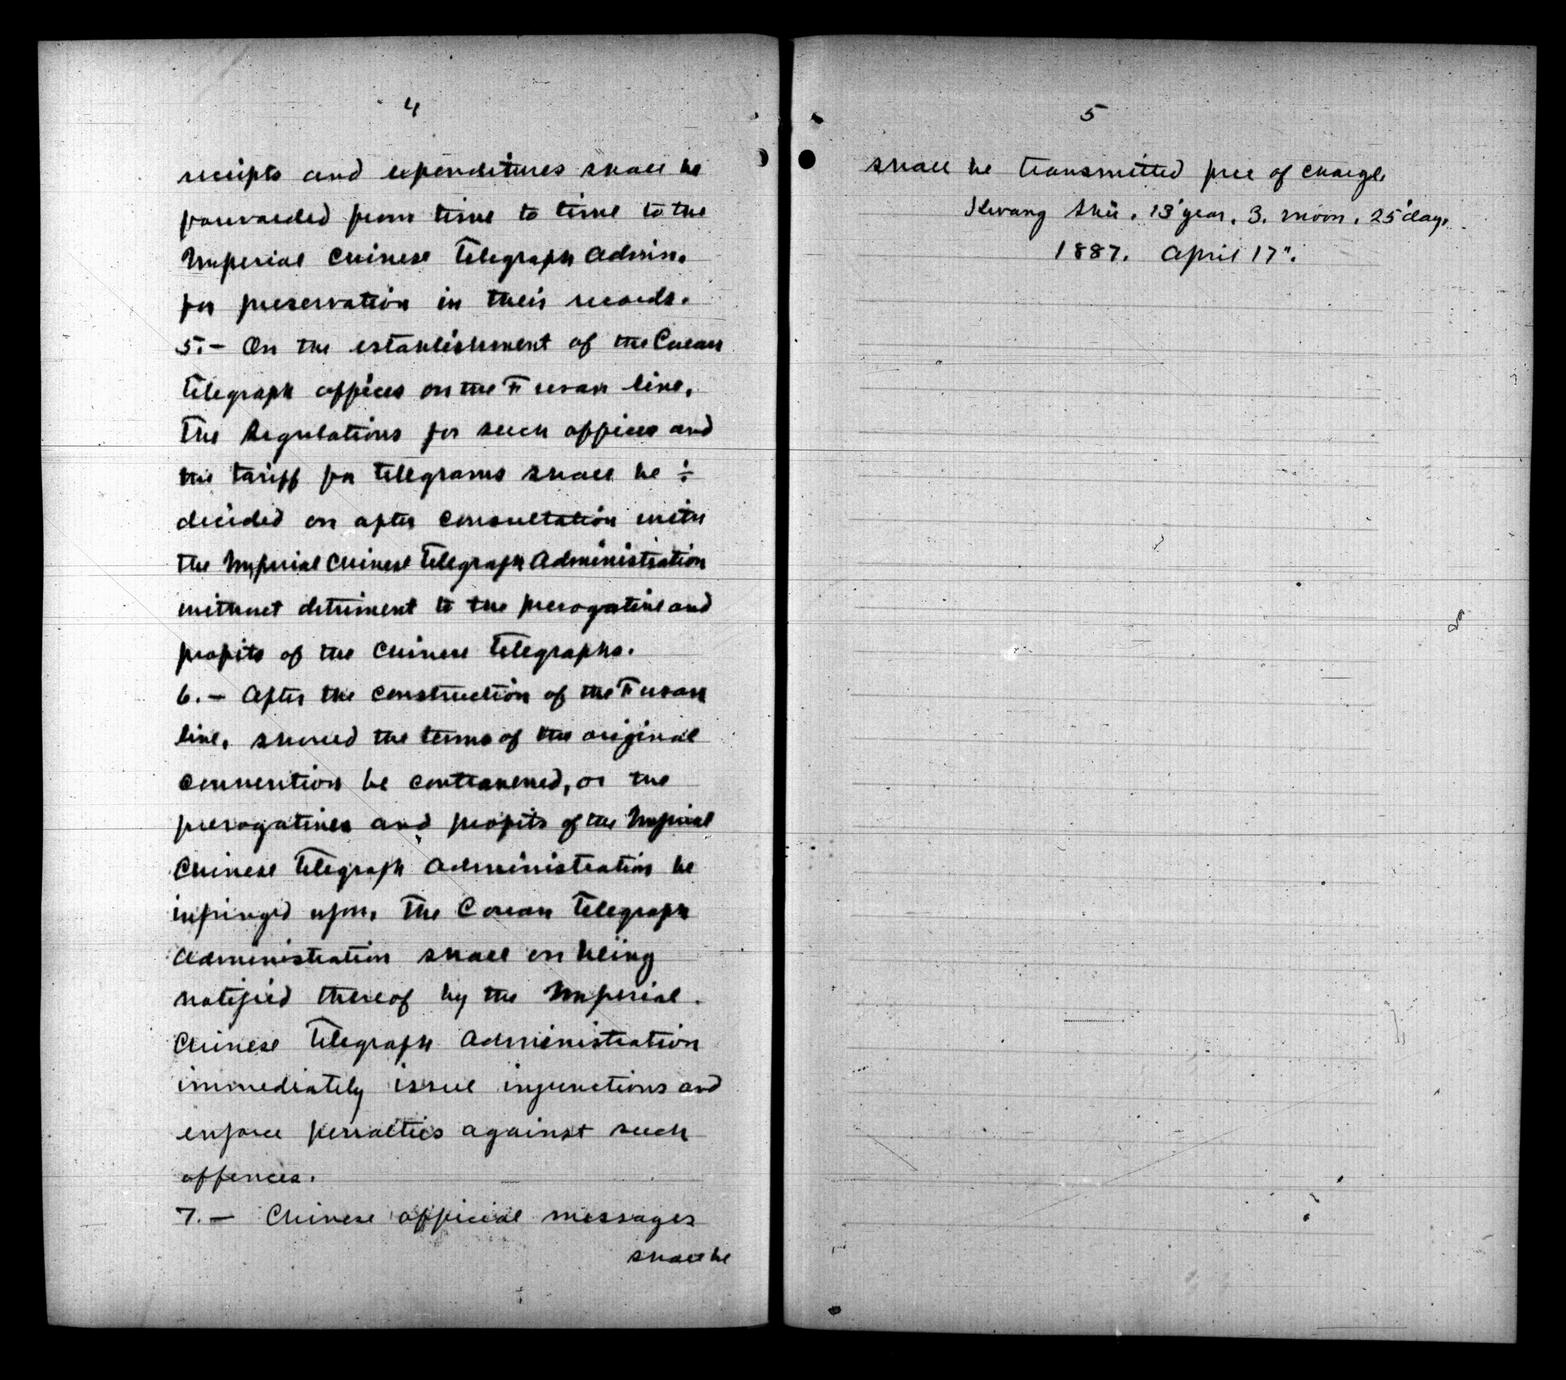 4
receipts and expenditures shall be
forwarded from time to time to the
Imperial Chinese Telegraph Admin.
for preservation in their records.
5.— On the establishment of the Corean
telegraph offices on the Fusan line,
the Regulations for such offices and
the tariff for telegrams shall be ÷
decided on after consultation with
the Imperial Chinese Telegraph Administration
without detriment to the prerogative and
profits of the Chinese Telegraphs.
6.— After the construction of the Fusan
line, should the terms of the original
convention be contravened, or the
prerogatives and profits of the Imperial
Chinese Telegraph Administration be
infringed upon, the Corean Telegraph
Administration shall on being
notified thereof by the Imperial
Chinese Telegraph Administration
immediately issue injunctions and
enforce penalties against such
offences.
7.— Chinese official messages
shall be
5
shall be transmitted free of charge.
Kwang Shü. 13 year. 3. moon. 25 day.
1887. April 17".